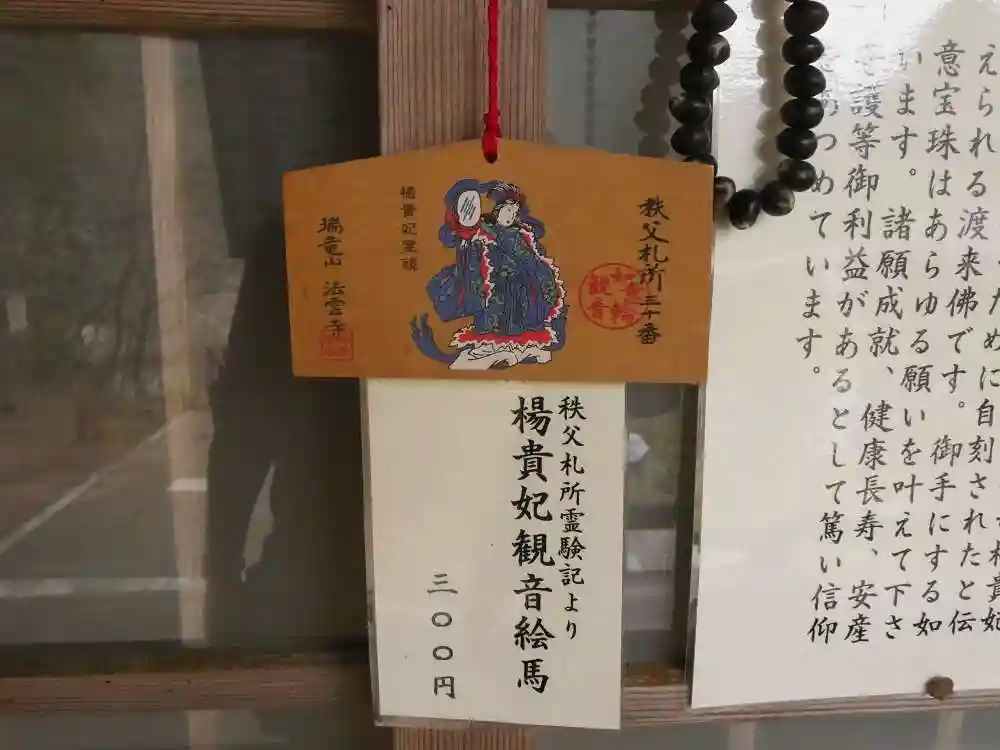 秩父札所三十番
楊貴妃霊鏡
瑞竜山 法雲寺
秩父札所霊験記より
楊貴妃観音絵馬
三〇〇円
ために自刻されたと伝
えられる渡来佛です。御手にする如
意宝珠はあらゆる願いを叶えて下さ
います。諸願成就、健康長寿、安産
守護等御利益があるとして篤い信仰
をあつめています。